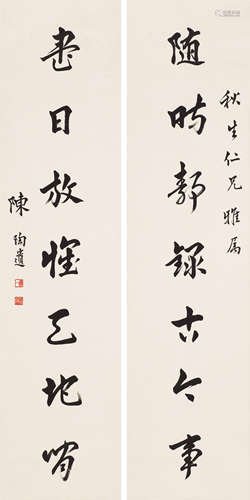 秋生仁兄雅属
随時静録古今事
盡日放懷天地間
陳陶遺